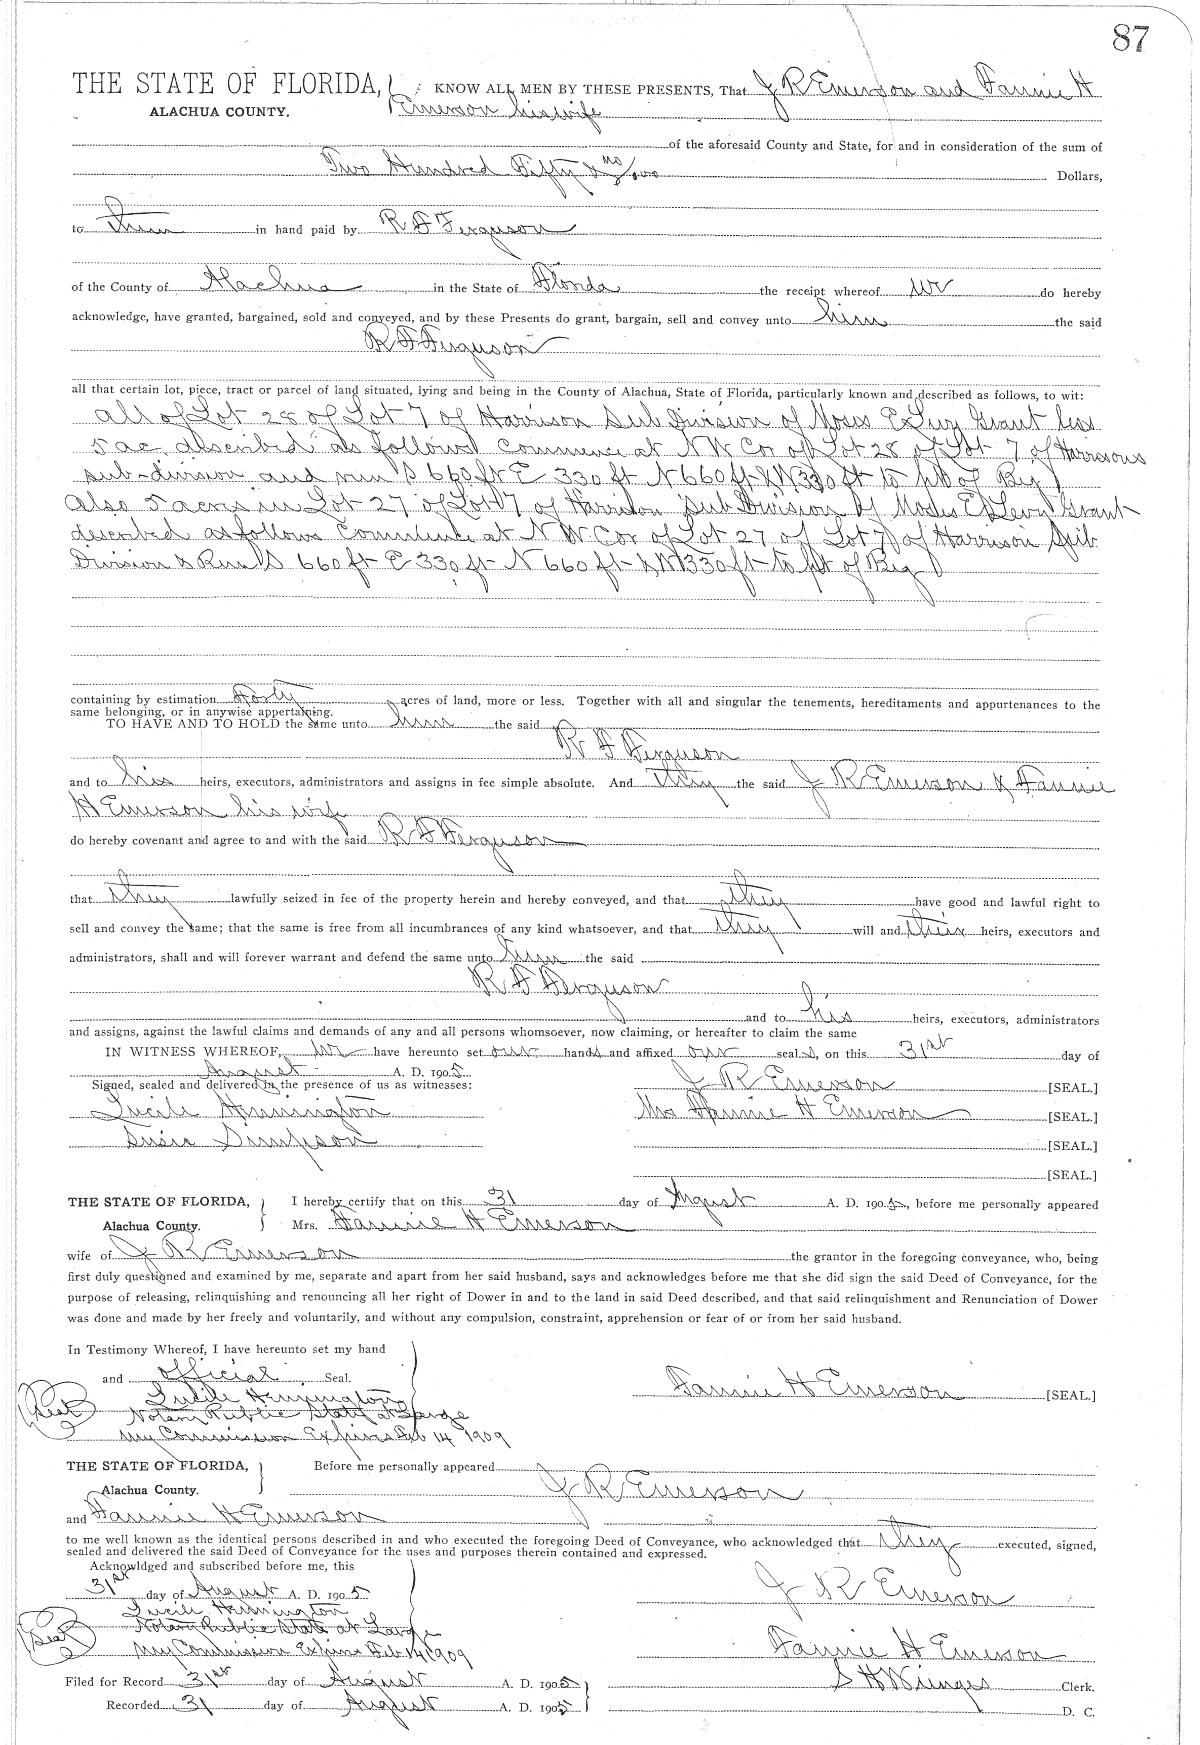 87
THE STATE OF FLORIDA, KNOW ALL MEN BY THESE PRESENTS, That J R Emerson and Fannie H
ALACHUA COUNTY. Emerson his wife
of the aforesaid County and State, for and in consideration of the sum of
Two Hundred Fifty & no/100 Dollars,
to them in hand paid by R F Ferguson
of the County of Alachua in the State of Florida the receipt whereof we do hereby
acknowledge, have granted, bargained, sold and conveyed, and by these Presents do grant, bargain, sell and convey unto him the said
R F Ferguson
all that certain lot, piece, tract or parcel of land situated, lying and being in the County of Alachua, State of Florida, particularly known and described as follows, to wit:
All of Lot 28 of Lot 7 of Harrison Sub Division of Moses E Levy Grant less
5 ac described as follows Commence at N W Cor of Lot 28 of Lot 7 of Harrisons
sub-division and run S 660 ft E 330 ft N 660 ft & W 330 ft to pt of Beg
Also 5 acres in Lot 27 of Lot 7 of Harrison Sub Division of Moses E Levy Grant
described as follows Commence at N W Cor of Lot 27 of Lot 7 of Harrison Sub
Division & Run S 660 ft E 330 ft N 660 ft & W 330 ft to pt of Beg
containing by estimation Forty acres of land, more or less. Together with all and singular the tenements, hereditaments and appurtenances to the
same belonging, or in anywise appertaining.
TO HAVE AND TO HOLD the same unto him the said
R F Ferguson
and to his heirs, executors, administrators and assigns in fee simple absolute. And they the said J R Emerson & Fannie
H Emerson his wife
do hereby covenant and agree to and with the said R F Ferguson
that they lawfully seized in fee of the property herein and hereby conveyed, and that they have good and lawful right to
sell and convey the same; that the same is free from all incumbrances of any kind whatsoever, and that they will and their heirs, executors and
administrators, shall and will forever warrant and defend the same unto him the said
R F Ferguson
and to his heirs, executors, administrators
and assigns, against the lawful claims and demands of any and all persons whomsoever, now claiming, or hereafter to claim the same
IN WITNESS WHEREOF, we have hereunto set our hands and affixed our seals, on this 31st day of
August A. D. 1905
Signed, sealed and delivered in the presence of us as witnesses: J R Emerson [SEAL.]
Lucile Hennington Mrs Fannie H Emerson [SEAL.]
Susie Simpson [SEAL.]
[SEAL.]
THE STATE OF FLORIDA, I hereby certify that on this 31 day of August A. D. 1905, before me personally appeared
Alachua County. Mrs. Fannie H Emerson
wife of J R Emerson the grantor in the foregoing conveyance, who, being
first duly questioned and examined by me, separate and apart from her said husband, says and acknowledges before me that she did sign the said Deed of Conveyance, for the
purpose of releasing, relinquishing and renouncing all her right of Dower in and to the land in said Deed described, and that said relinquishment and Renunciation of Dower
was done and made by her freely and voluntarily, and without any compulsion, constraint, apprehension or fear of or from her said husband.
In Testimony Whereof, I have hereunto set my hand
and official Seal.
Seal Lucile Hennington Fannie H Emerson [SEAL.]
Notary Public State at Large
My Commission Expires Feb 14 1909
THE STATE OF FLORIDA, Before me personally appeared
Alachua County. J R Emerson
and Fannie H Emerson
to me well known as the identical persons described in and who executed the foregoing Deed of Conveyance, who acknowledged that they executed, signed,
sealed and delivered the said Deed of Conveyance for the uses and purposes therein contained and expressed.
Acknowldged and subscribed before me, this
31st day of August A. D. 1905 J R Emerson
Lucile Hennington
Seal Notary Public State at Large
My Commission Expires Feb 14 1909 Fannie H Emerson
Filed for Record 31st day of August A. D. 1905 S H Wienges Clerk.
Recorded 31 day of August A. D. 1905 D. C.